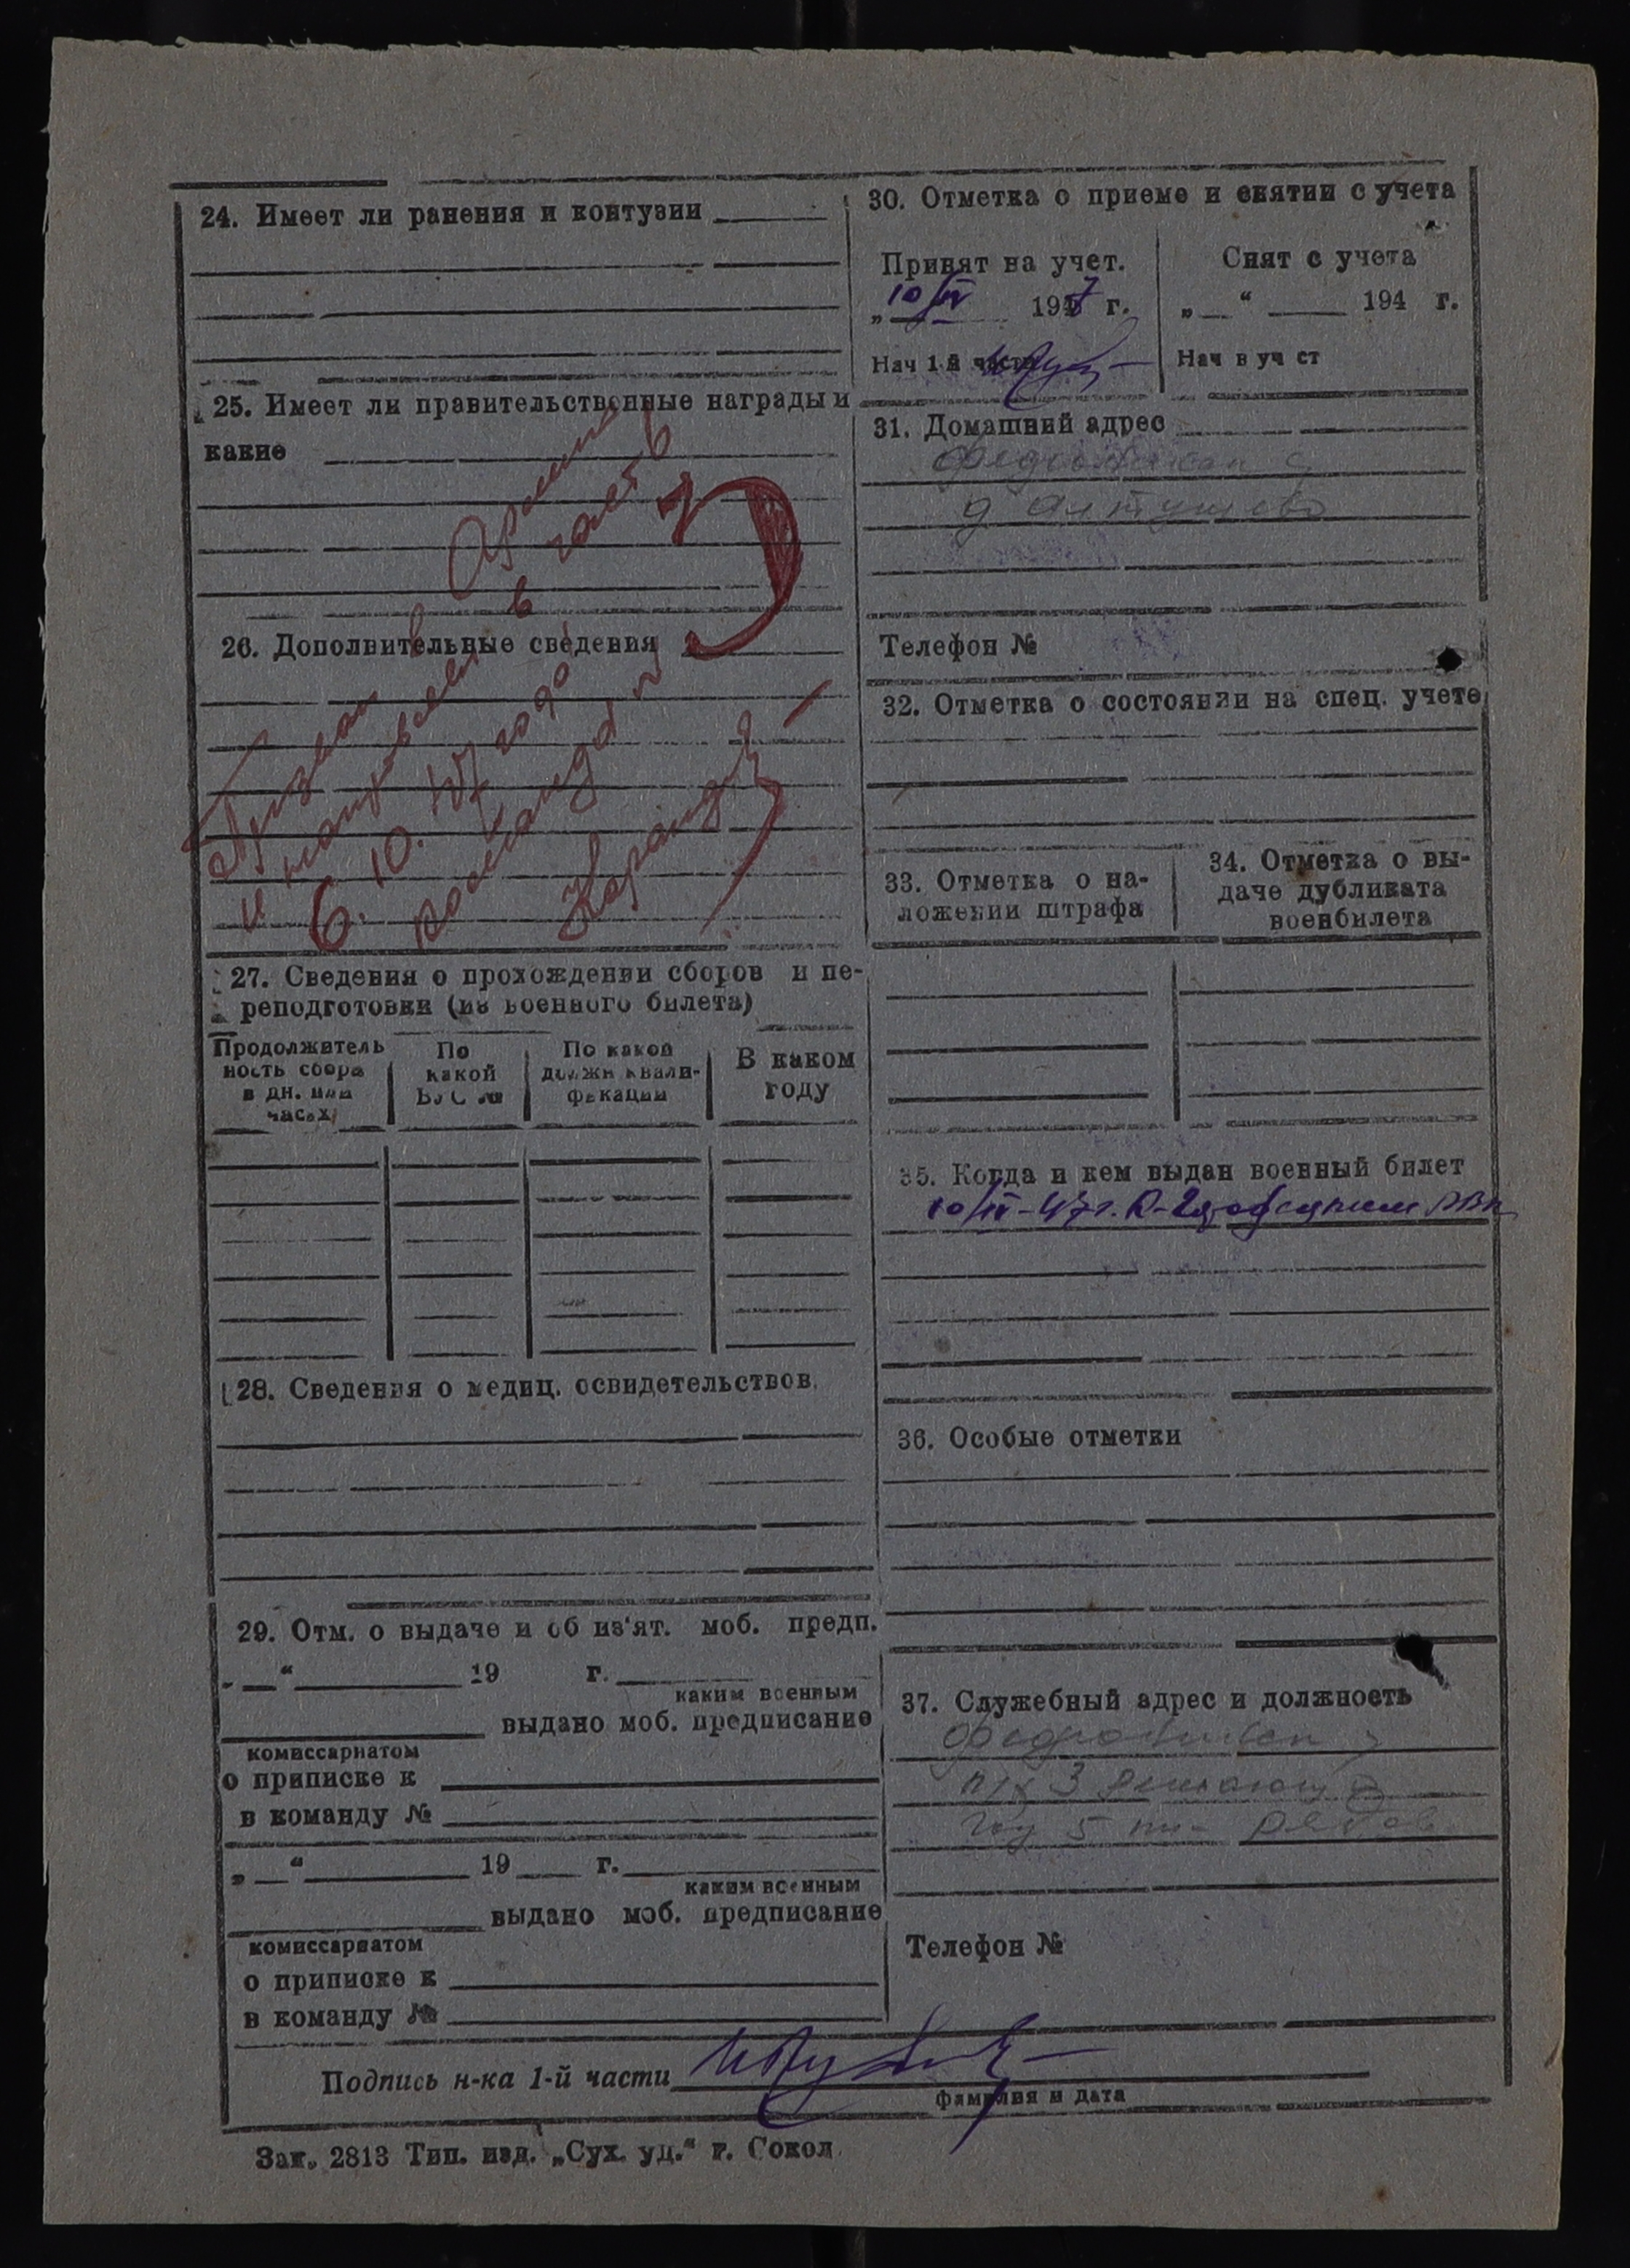 24. Имеет ли ранения и контузии
25. Имеет ли правительственные награды и
какие
26. Дополнительные сведения
Призван в Армию
и направлен в часть
6. 10. 47 года
команда
27. Сведения о прохождении сборов и пе-
реподготовки (из военного билета)
Продолжитель
ность сбора
в дн. или
часах
По
какой
ВУС №
По какой
должн квали-
фикации
В каком
году
28. Сведения о медиц. освидетельствов.
29. Отм. о выдаче и об из'ят. моб. предп.
„ “ 19 г.
каким военным
выдано моб. предписание
комиссариатом
о приписке к
в команду №
„ “ 19 г.
каким военным
выдано моб. предписание
комиссариатом
о приписке к
в команду №
30. Отметка о приеме и снятии с учета
Принят на учет.
„10/IV 1947 г.
Нач 1-й части
Снят с учета
„ “ 194 г.
Нач в уч ст
31. Домашний адрес
д Алтушево
Телефон №
32. Отметка о состоянии на спец. учете
33. Отметка о на-
ложении штрафа
34. Отметка о вы-
даче дубликата
военбилета
35. Когда и кем выдан военный билет
10/IV-47г. РВК
36. Особые отметки
37. Служебный адрес и должность
Телефон №
Подпись н-ка 1-й части
фамилия и дата
Зак. 2813 Тип. изд. „Сух. уд.“ г. Сокол